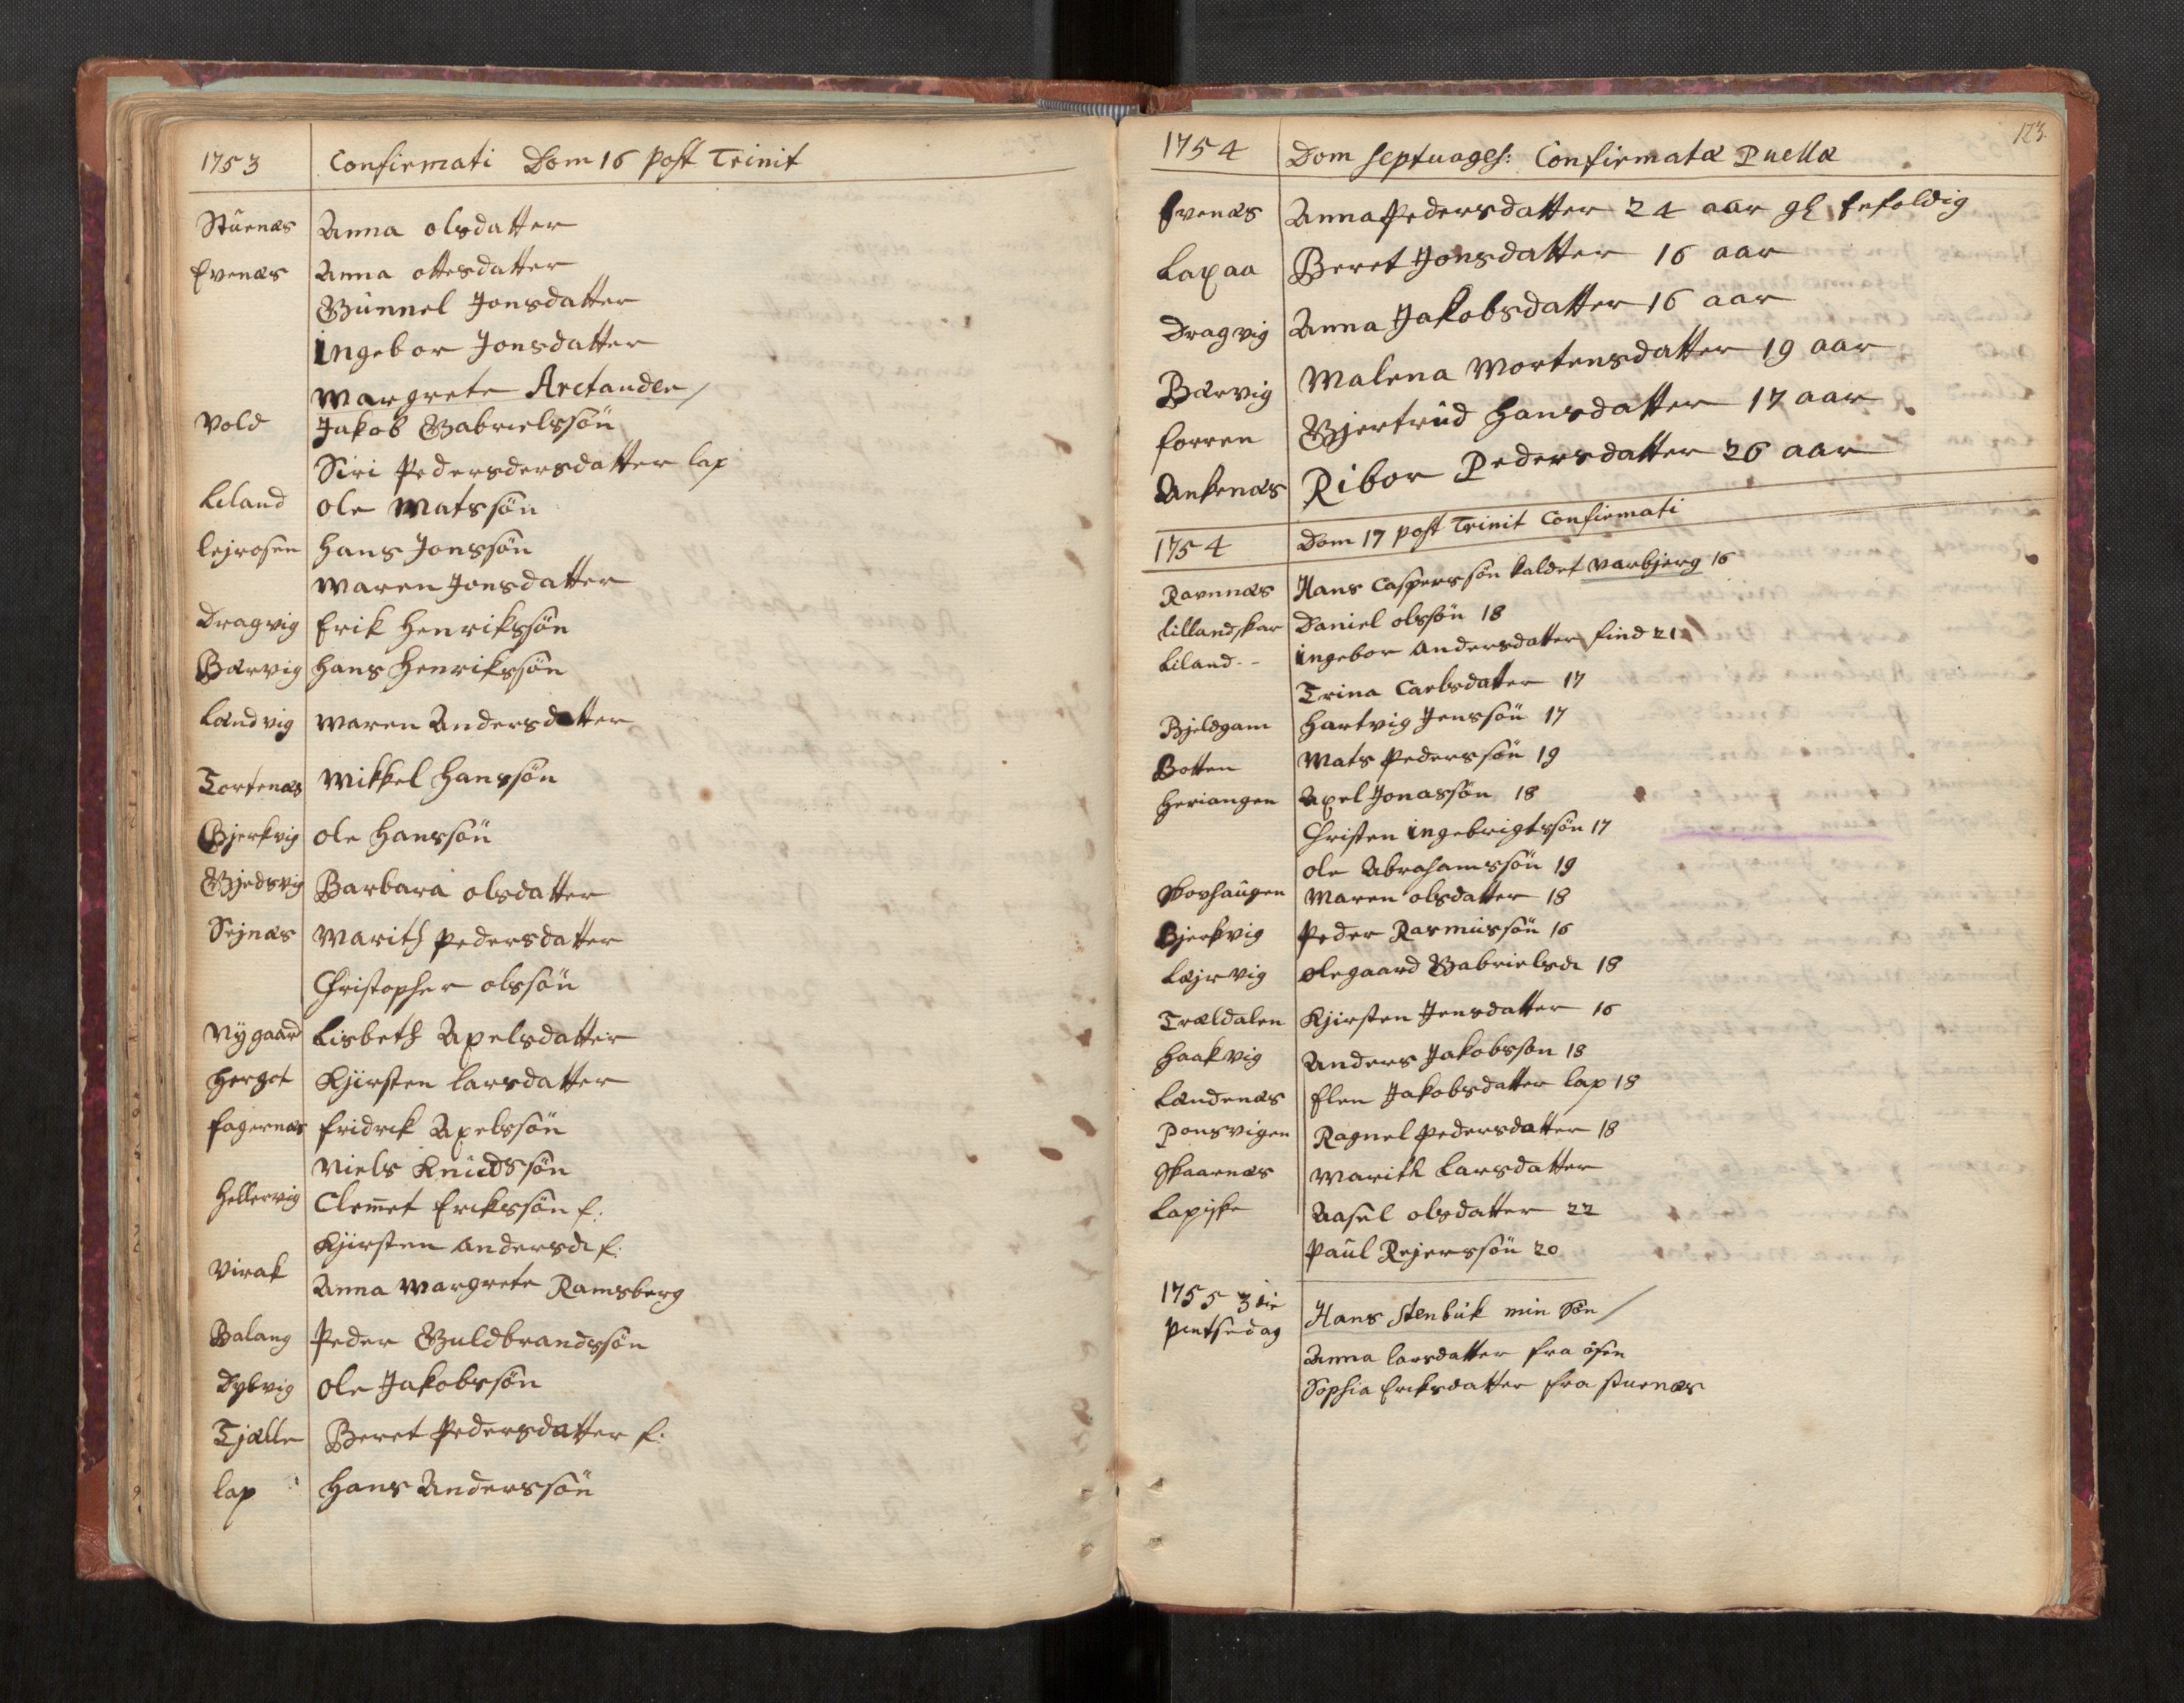 1753 Confirmati Dom 16 post Trinit
Stuenæs Anna olsdatter
Evenæs Anna ottesdatter
Gunnel Jonsdatter
ingebor Jonsdatter
Margrete Arctander /
Vold Jakob Gabrielssøn
Siri Pedersdersdatter lap
Liland ole Matssøn
lejrosen Hans Jonssøn
Maren Jonsdatter
Dragvig Erik Henrikssøn
Bærvig Hans Henrikssøn
Lændvig Maren Andersdatter
Tortenæs Mikkel Hanssøn
Bjerkvig ole Hanssøn
Gjedsvig Barbara olsdatter
Sejnæs Marith pedersdatter
Christopher olssøn
Nygaard Lisbeth Axelsdatter
Hergot Kjirsten larsdatter
fagernæs fridrik Axelssøn
Niels Knudssøn
Hellervig Clemet Erikssøn f:
Kjirsten Andersd f:
Virak Anna Margrete Ramsberg
Balang Peder Guldbrandssøn
Dybvig ole Jakobssøn
Tjælle Beret Pedersdatter f:
lap Hans Anderssøn
123.
1754 Dom septuages: Confirmatæ Puellæ
Evenæs Anna Pedersdatter 24 aar gl Enfoldig
Laxaa Beret Jonsdatter 16 aar
Dragvig Anna Jakobsdatter 16 aar
Bærvig Malena Mortensdatter 19 aar
forren Gjertrud Hansdatter 17 aar
Ankenæs Ribor Pedersdatter 26 aar
1754 Dom 17 post Trinit Confirmati
Ravnnæs Hans Casperssøn kaldet Varbjerg 16
Lillandskar Daniel olssøn 18
Liland -- ingebor Andersdatter find 21
Trina Carlsdatter 17
Bjeldgam Hartvig Jenssøn 17
Botten Mats Pederssøn 19
Heriangen Axel Jonassøn 18
Christen ingebrigtssøn 17
ole Abrahamssøn 19
Skovhaugen Maren olsdatter 18
Bjerkvig Peder Rasmussøn 16
Læjrvig olegaard Gabrielsd 18
Trældalen Kjirsten Jensdatter 16
Haakvig Anders Jakobssøn 18
Lændenæs Elen Jakobsdatter lap 18
Ponsvigen Ragnel Pedersdatter 18
Skaarnæs Marith Larsdatter
Lapiske Aasel olsdatter 22
Paul Rejerssøn 20
1755 3die Hans Stenbuk min Søn /
Pintsedag
Anna larsdatter fra øsen
Sophia Eriksdatter fra stuenæs